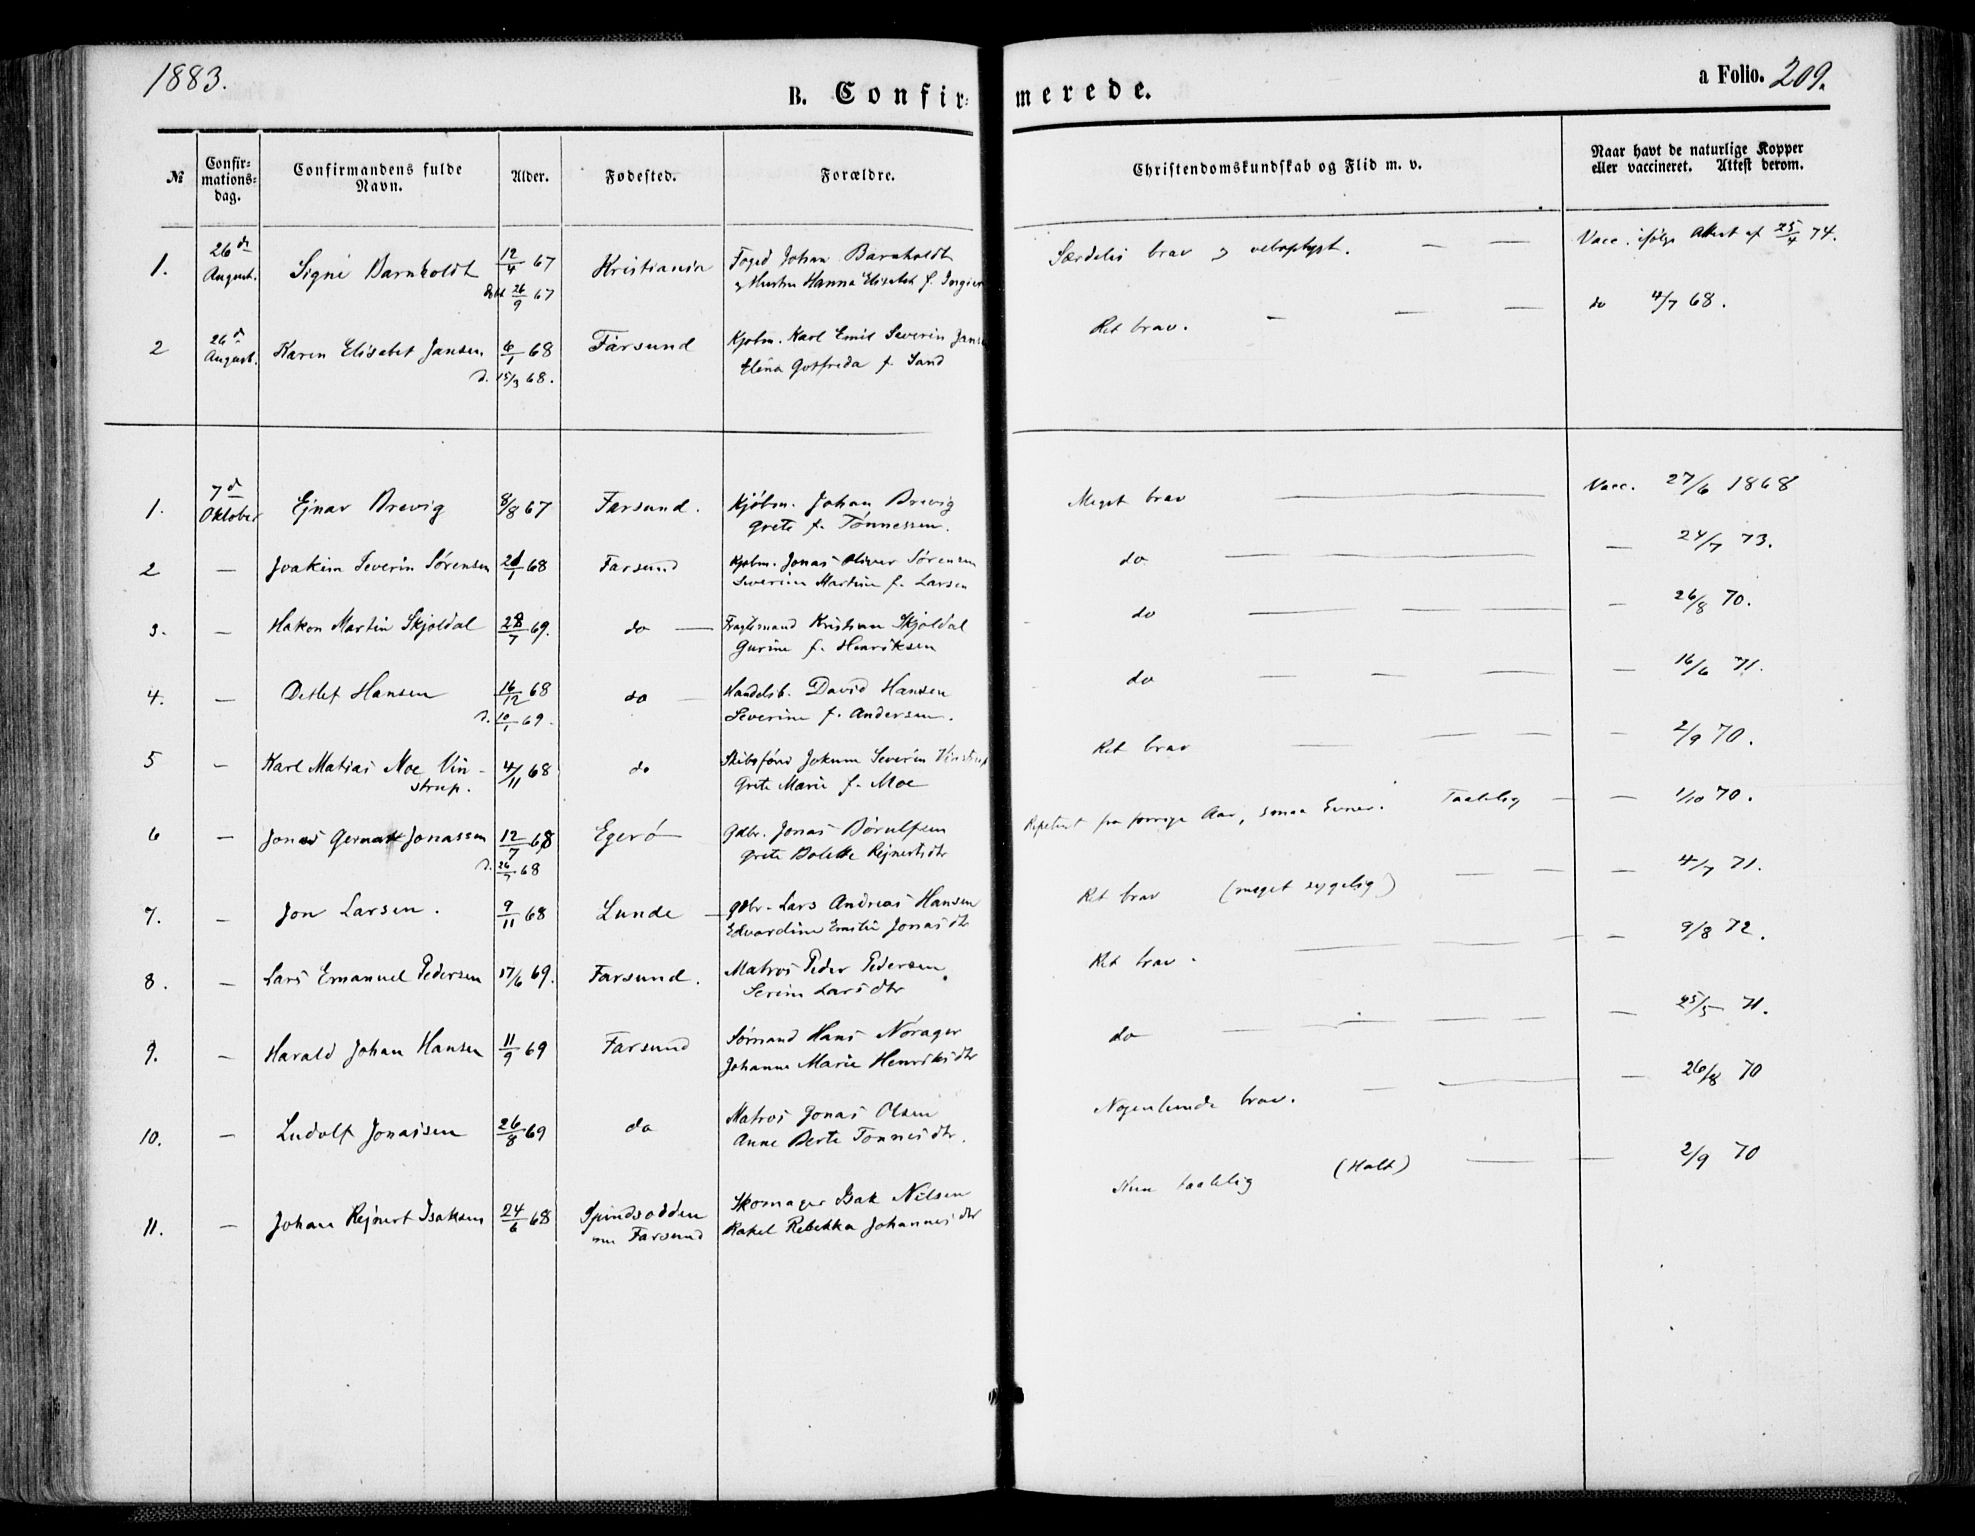 1883.
B. Confir=
merede.
a Folio. 209.
№
Confir=
mations=
dag.
Confirmandens fulde
Navn.
Alder.
Fødested.
Forældre.
Christendomskundskab og Flid m. v.
Naar havt de naturlige Kopper
eller vaccineret. Attest derom.
1. 26de August. Signe Barnholdt 12/4 67 Kristiania Foged Johan Barnholdt Særdeles brav og veloplyst. — — Vacc. ifølge Attest af 25/4 74.
døbt 26/9 67 og Hustru Hanna Elisabet f.
2 26d August. Karen Elisabet Jansen 6/1 68 Farsund Kjøbm. Karl Emil Severin Ret brav. — — — do 4/7 68.
d. 15/3 68. Elena Gotfreda f. Sand
1. 7d Oktober Ejnar Brevig 8/8 67 Farsund. Kjøbm. Johan Brevig Meget brav — Vacc. 27/6 1868
Grete f. Tønnessen.
2 — Joakim Severin Sørensen 21/1 68 Farsund Kjøbm. Jonas Oliver Sørensen do — — — — 24/7 73.
Severine Martine f. Larsen
3. — Hakon Martin Skjoldal 28/7 69. do — Fragtemand Kristian Skjoldal do — — — — 26/8 70.
Gurine f. Henriksen
4. — Detlef Hansen 16/12 68 do — Handelsb. David Hansen do — — — — 16/6 71.
d. 10/1 69. Severine f. Andersen.
5 — Karl Matias Moe Vin- 4/11 68 do Skibsfører Jokum Severin Vinstrup Ret brav — — — — 2/9 70.
strup. Grete Marie f. Moe
6 — Jonas Jonassen 12/7 68 Egerø Gdbr. Jonas Repetent fra forrige Aar, smaa Evner. Taalelig — — 1/10 70.
d. 26/7 68 Grete Bolette Rejnertsdtr
7. — Jon Larsen. 9/11 68 Lunde — Gdbr. Lars Andreas Hansen Ret brav (meget sygelig) — — — 4/7 71.
Edvardine Emilie Jonasdtr
8. — Lars Emanuel Pedersen 17/6 69. Farsund. Matros Peder Pedersen Ret brav. — — — — 9/8 72.
Serine Larsdtr
9. — Harald Johan Hansen 11/9 69 Farsund Sømand Hans Nørager do — — — — 25/5 71.
Johanne Marie Henriksdtr
10. — Ludolf Jonassen 26/8 69 do Matros Jonas Olsen Nogenlunde brav. — — — 26/8 70
Anne Berte Tønnesdtr.
11. — Johan Rejnert Isaksen 24/6 68 Spindsodden Skomager Isak Nilsen Kun taalelig (Halt) — — 2/9 70
nu Farsund Rakel Rebekka Johannesdtr